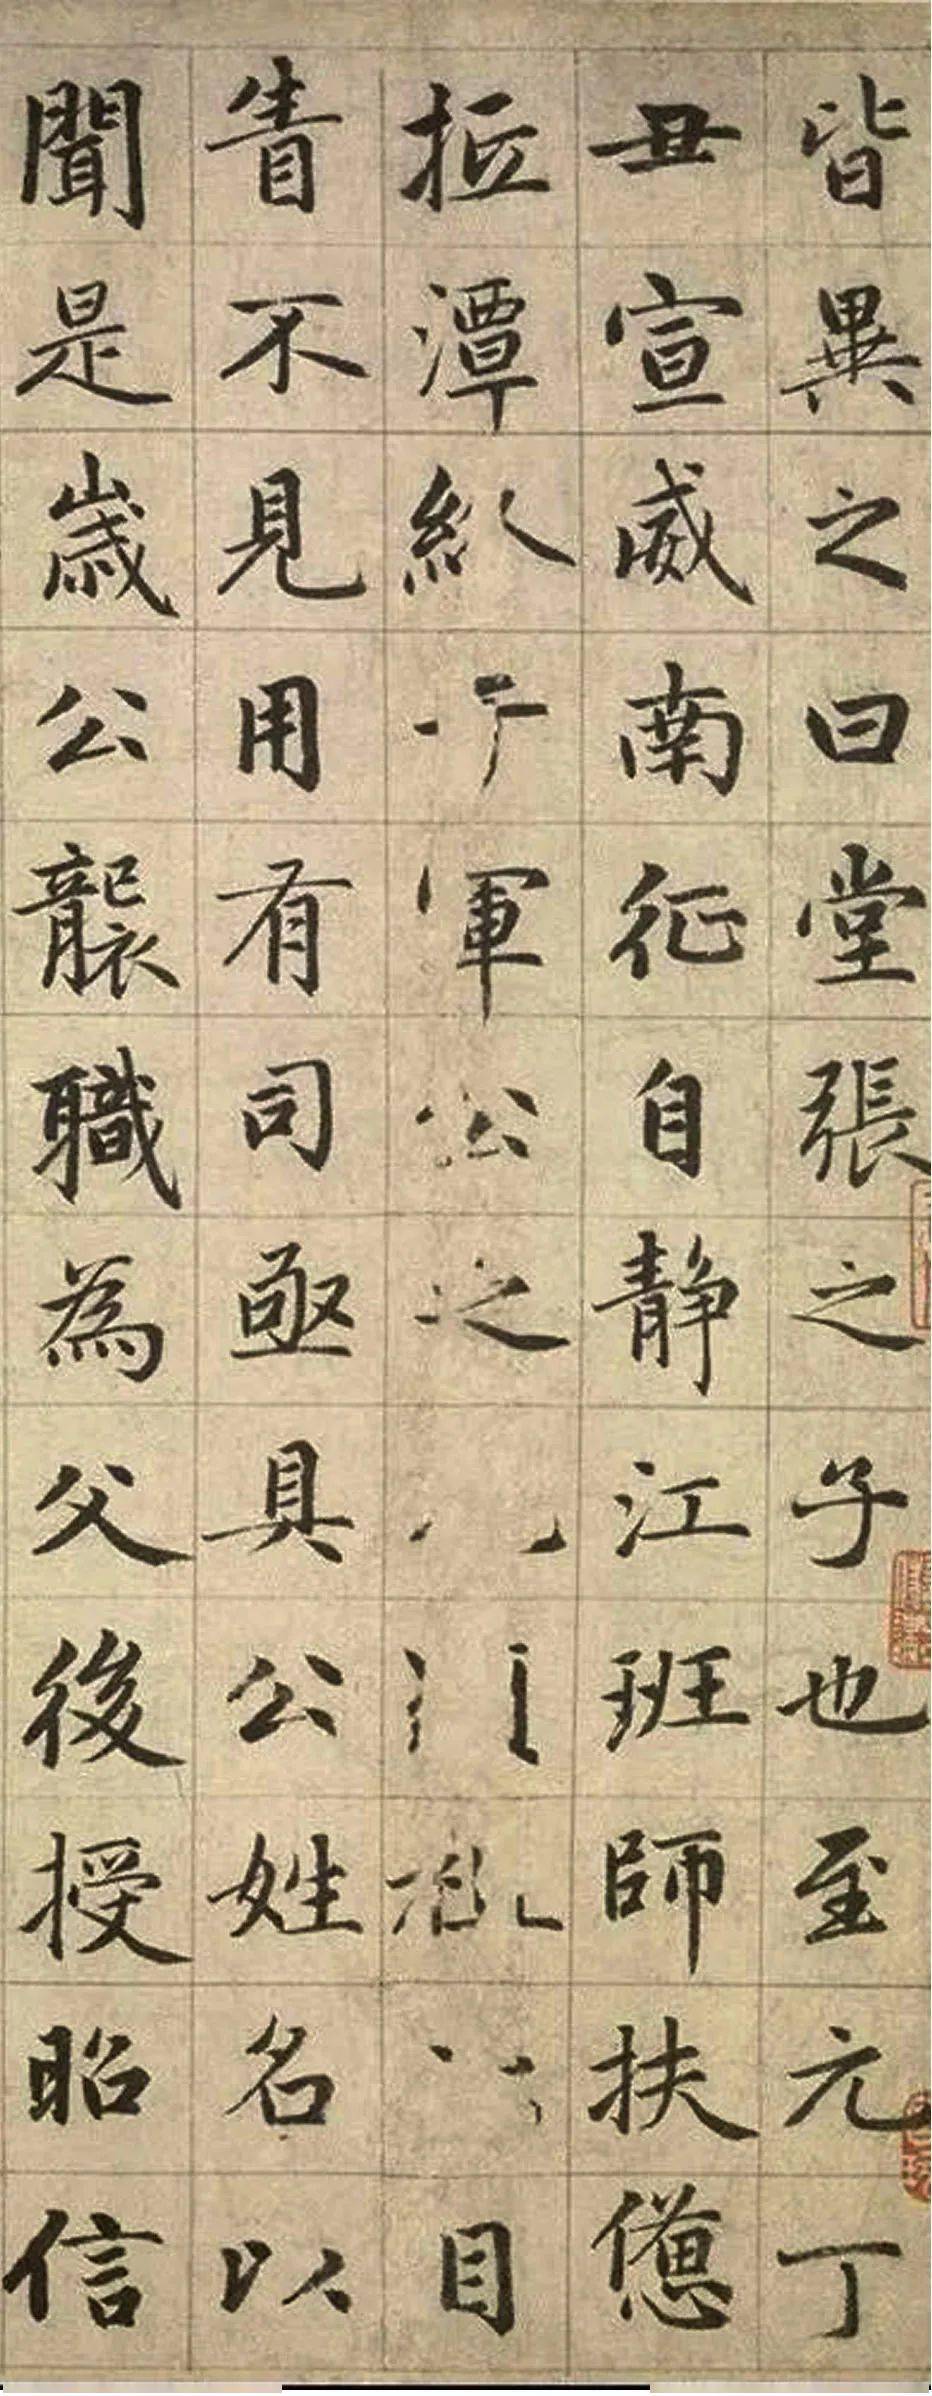 皆異之曰堂張之子也至元丁
丑宣威南征自静江班師扶憊
抵潭 軍公之 目
眚不見用有司亟具公姓名以
聞是歲公襲職為父後授昭信